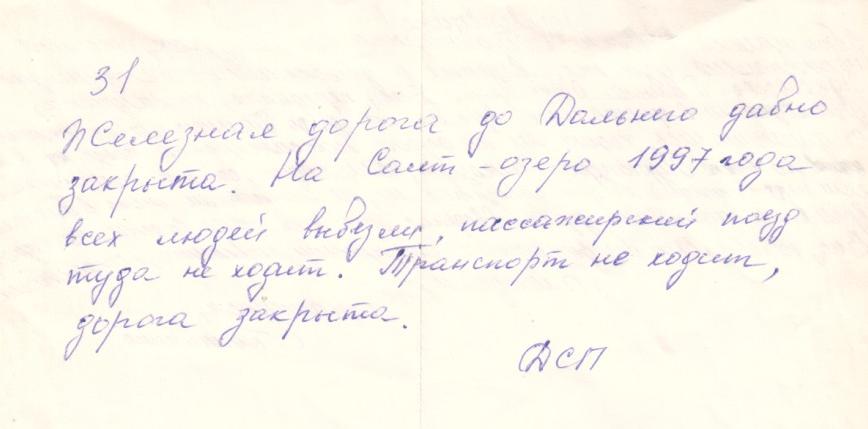 31
Железная дорога до Дальнего давно
закрыта. На Салт-озеро 1997 года
всех людей вывезли, пассажирский поезд
туда не ходит. Транспорт не ходит,
дорога закрыта.
ДСП